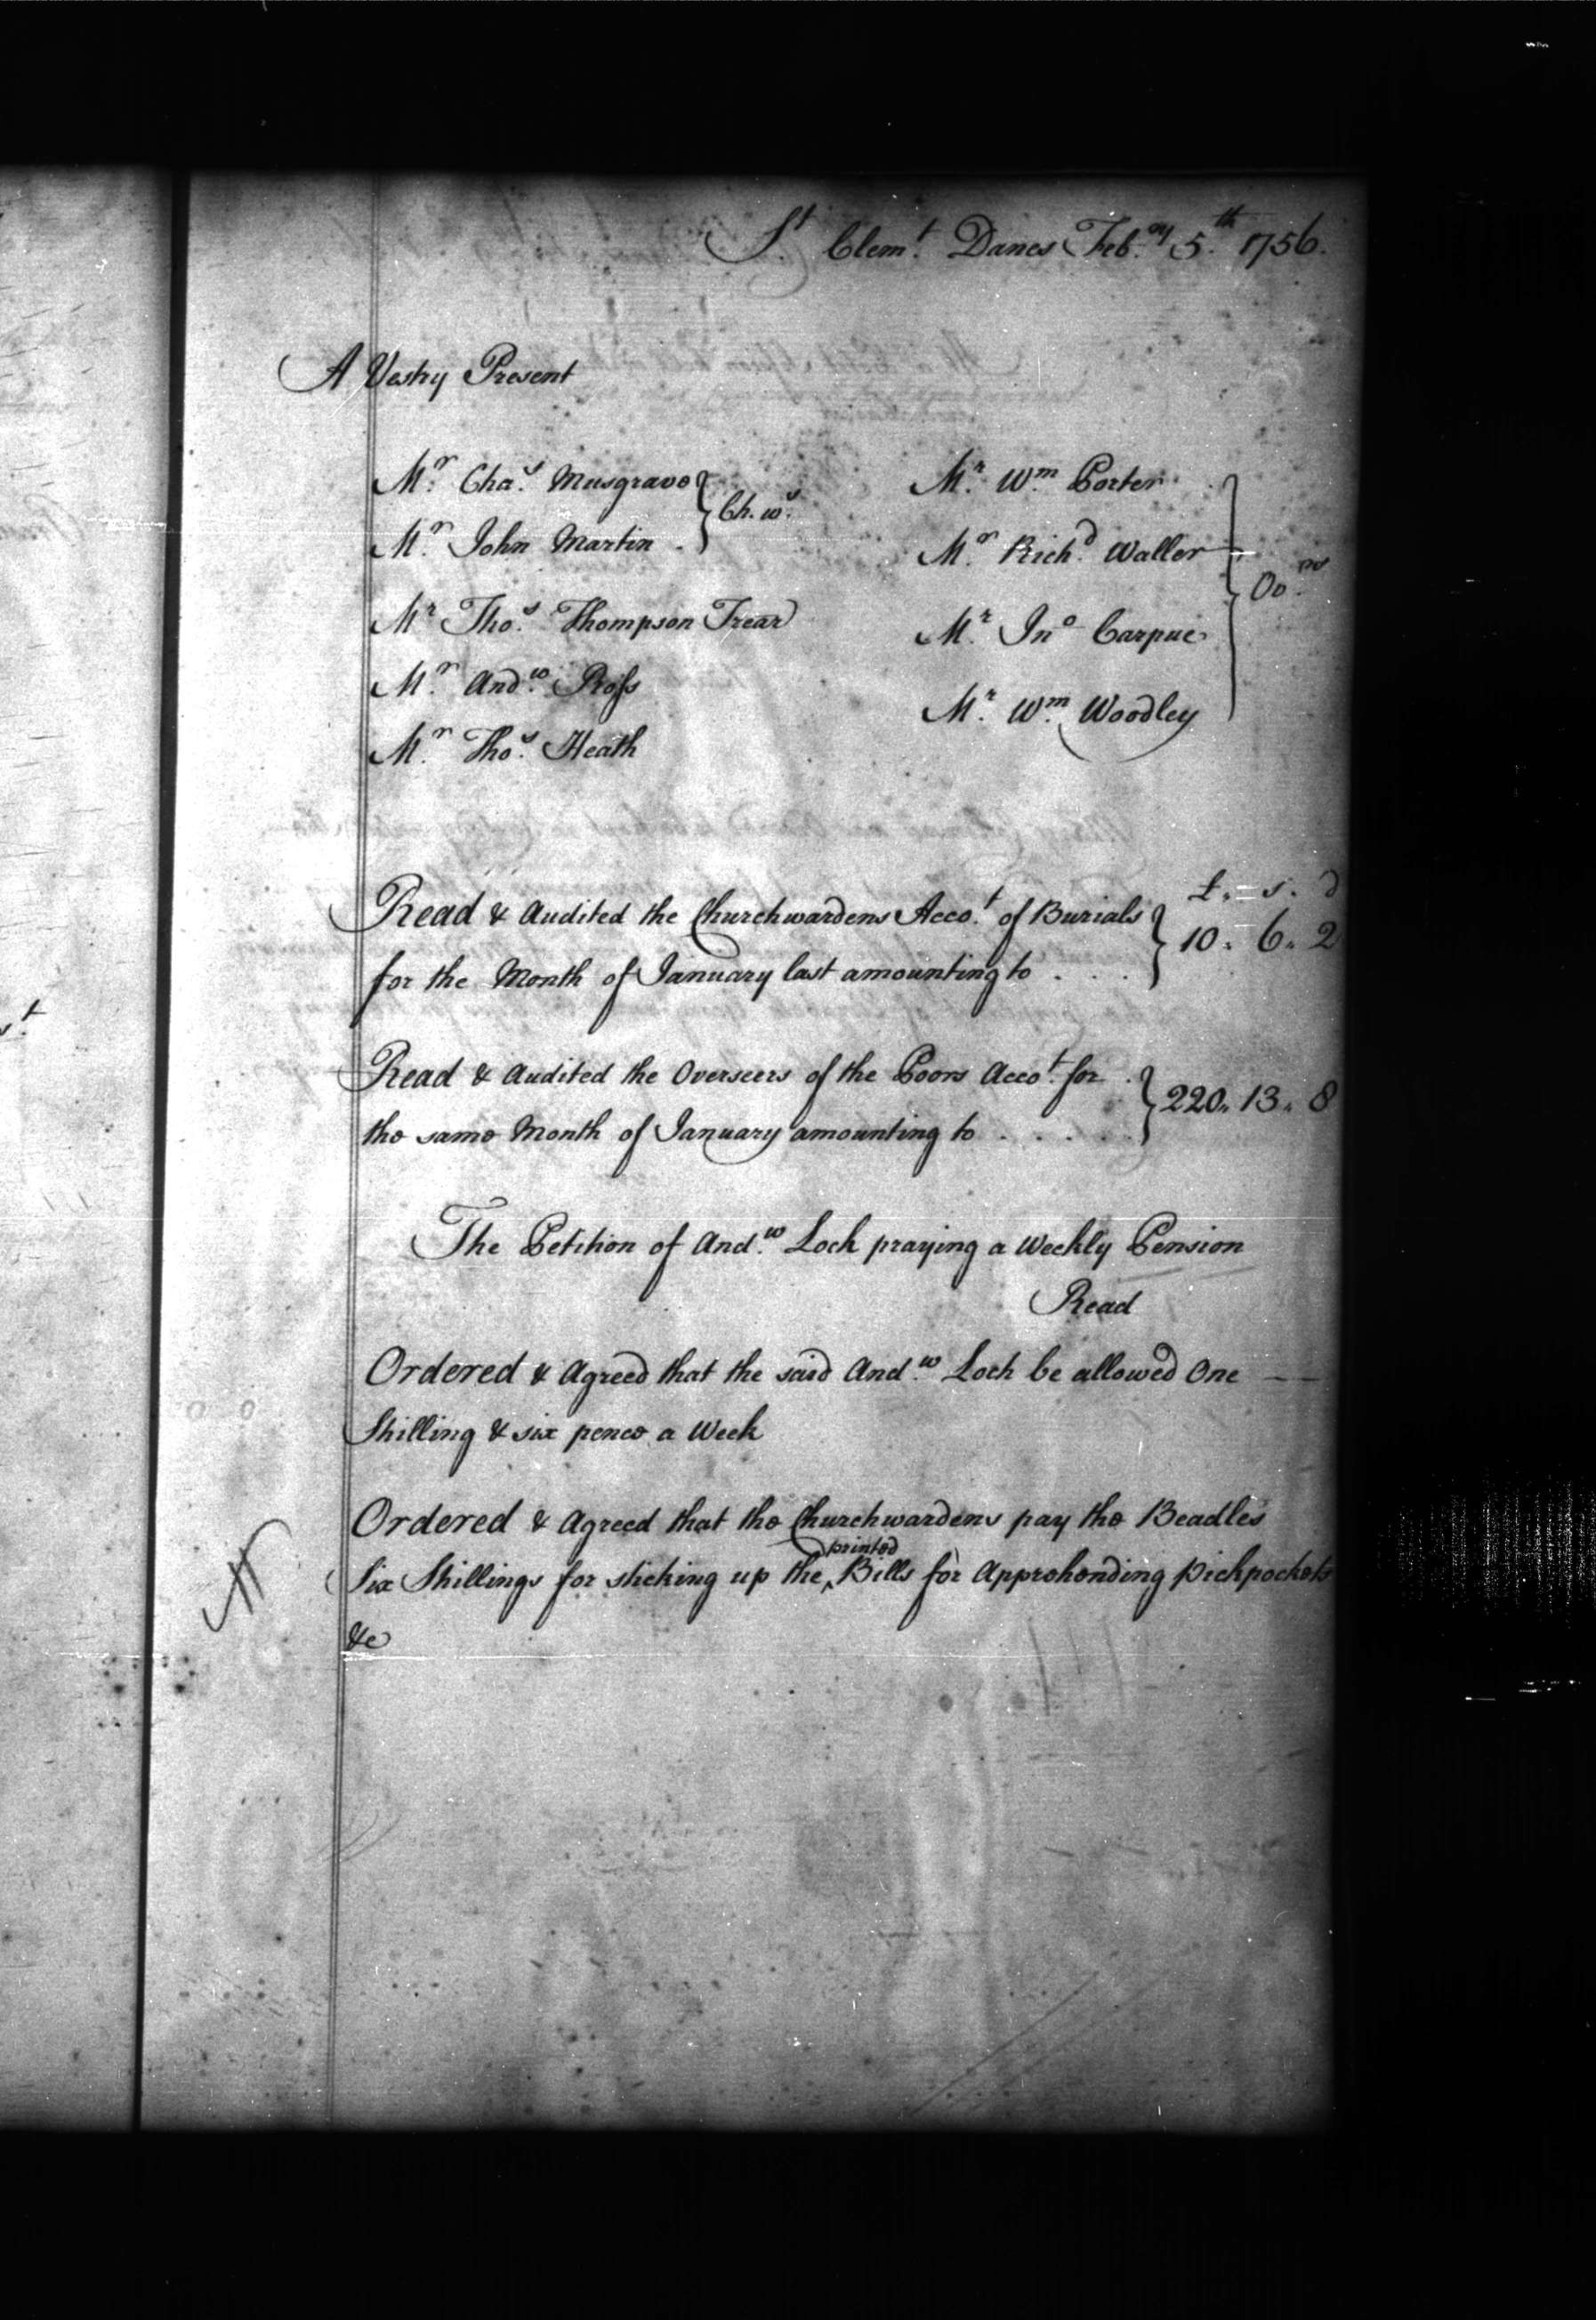 St. Clemt. Danes Feb.ry 5.th 1756.
A Vestry Present
Mr. Chas. Musgrave } Ch. ws.
Mr. John Martin .
Mr Thos. Thompson Trear
Mr. Andw. Ross
Mr. Thos. Heath
Mr. Wm Porter
Mr. Richd. Waller } Oors.
Mr. Jno Carpue
Mr. Wm. Woodley
£. s. d
Read & Audited the Churchwardens Accot. of Burials } 10. 6. 2
for the Month of January last amounting to . . .
Read & Audited the Overseers of the Poors Accot. for . } 220. 13. 8
the same Month of January amounting to . . . .
The Petition of Andw. Loch praying a Weekly Pension
Read
Ordered & Agreed that the said Andw. Loch be allowed One
Shilling & six pence a Week
Ordered & Agreed that the Churchwardens pay the Beadles
Six Shillings for sticking up the ^printed Bills for Apprehending Pickpockets
&c